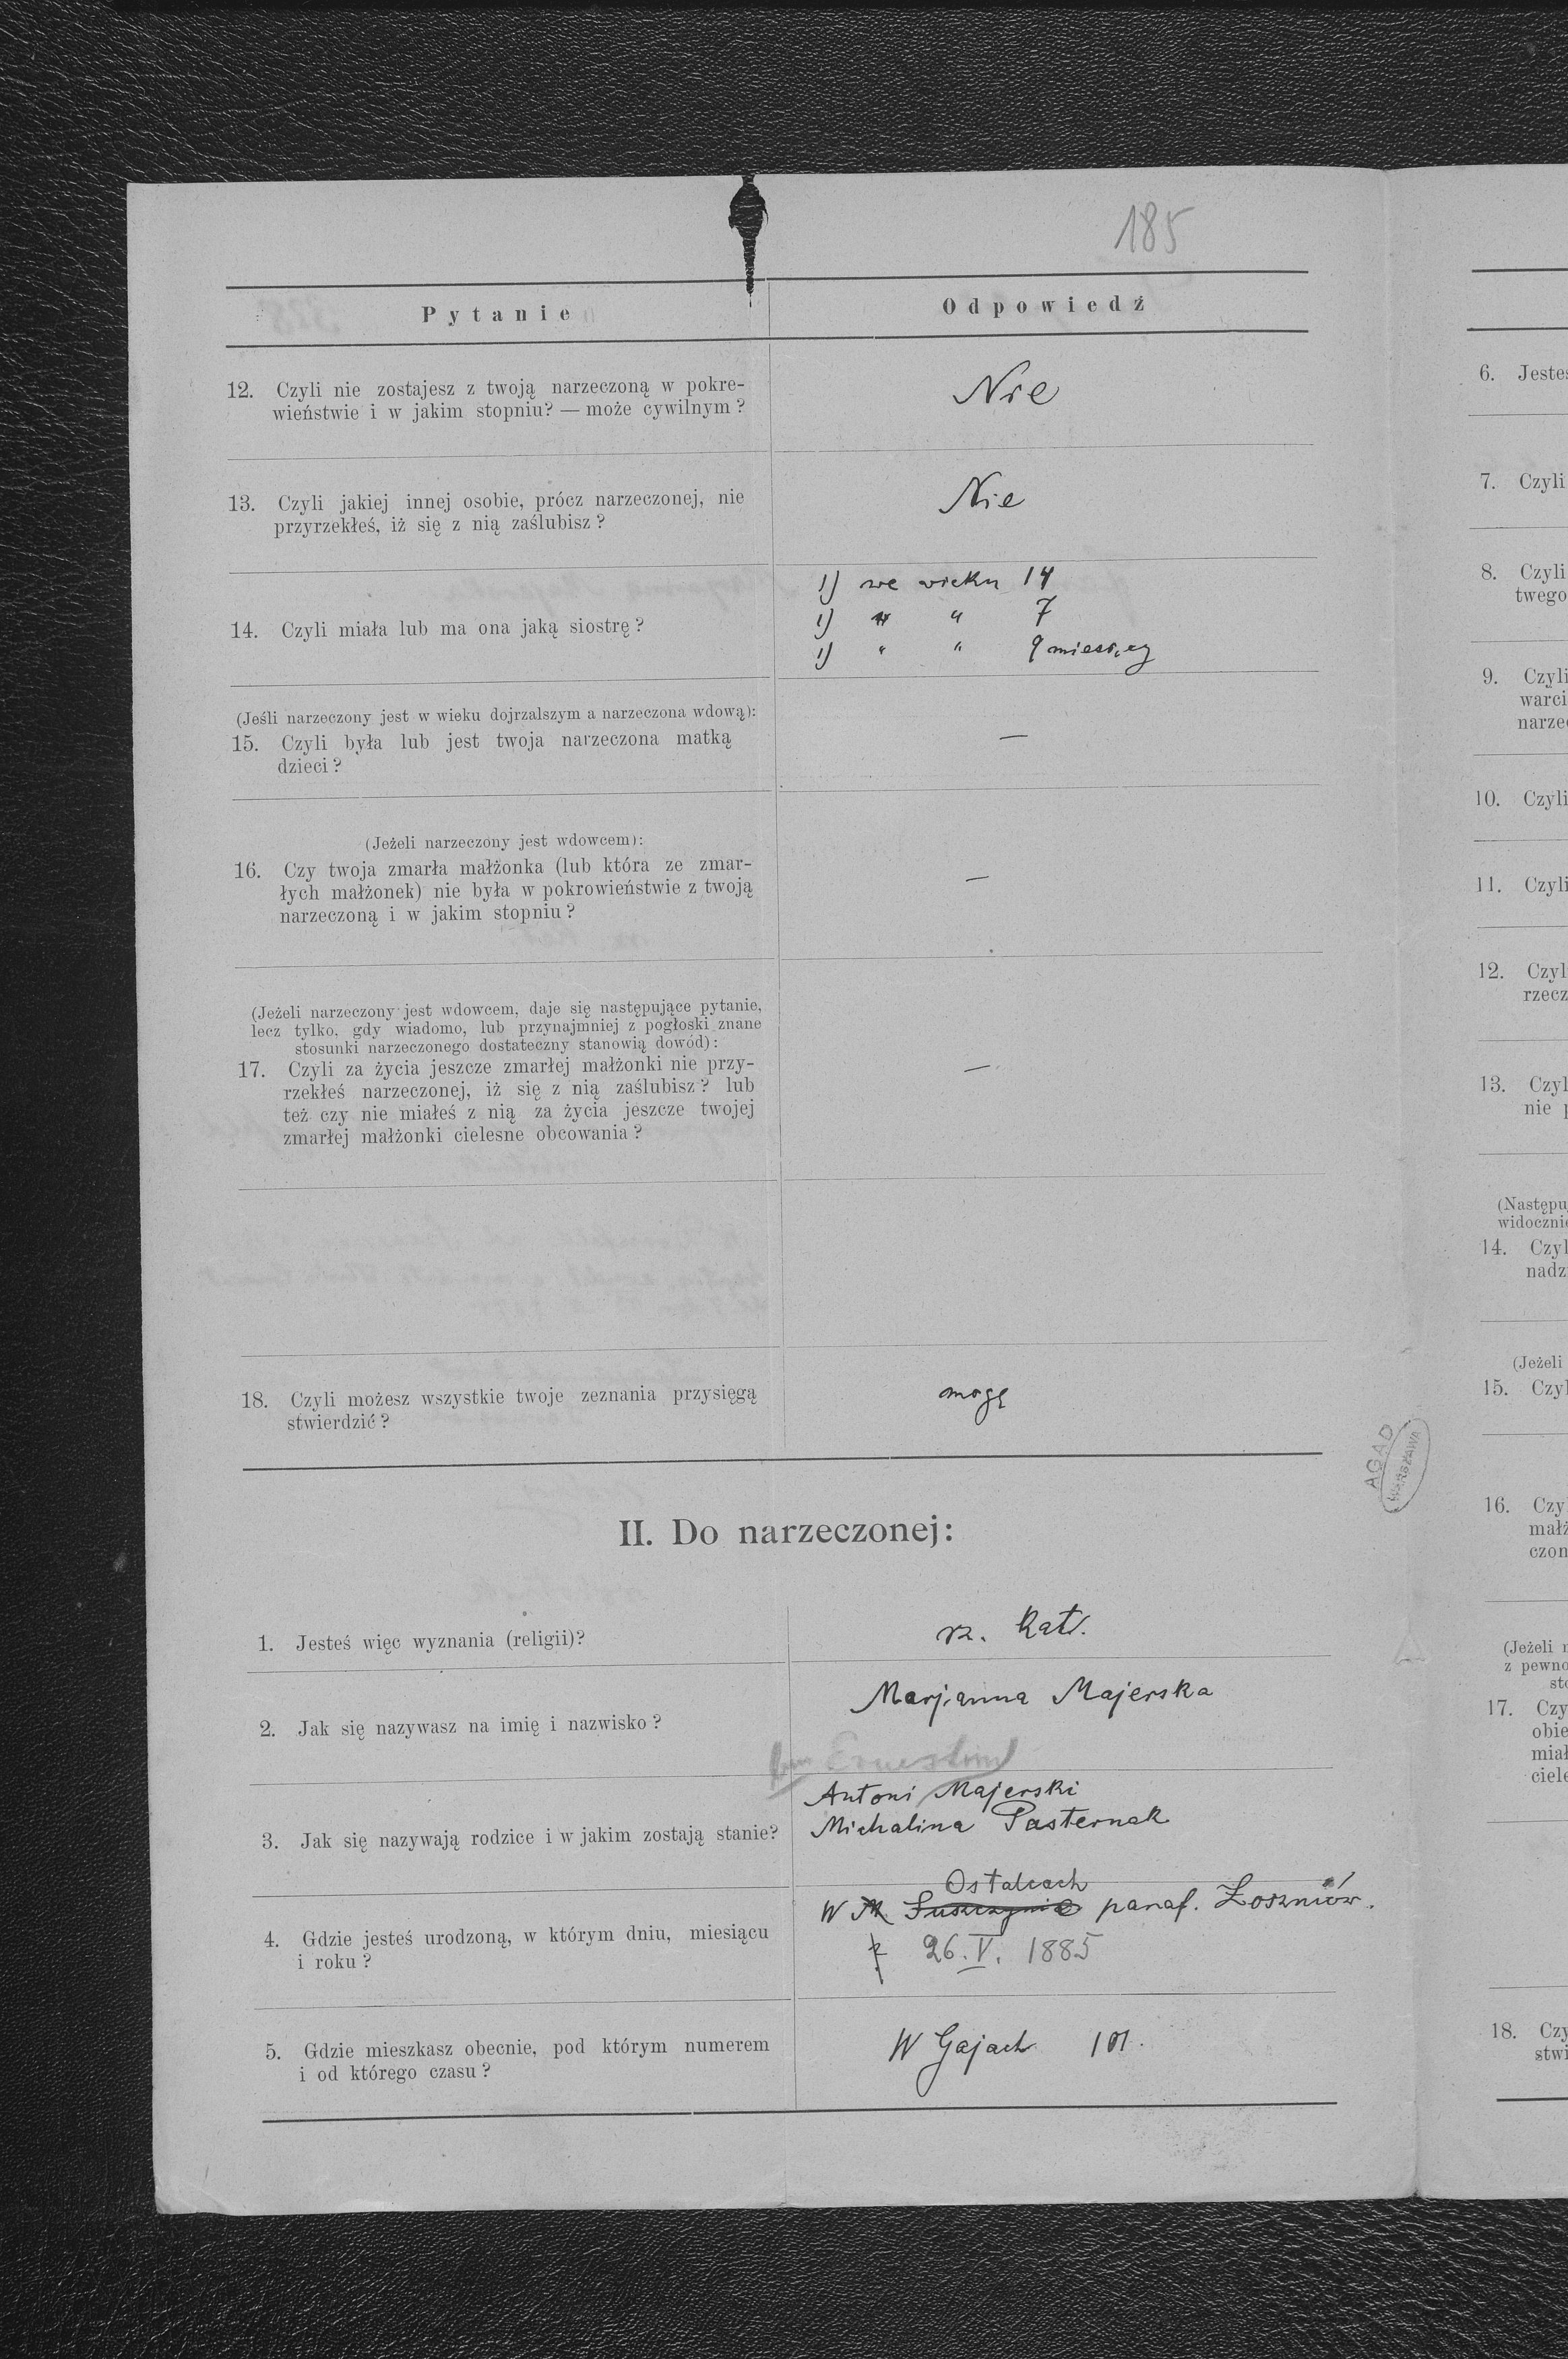 185
Pytanie
Odpowiedź
12. Czyli nie zostajesz z twoją narzeczoną w pokre-
wieństwie i w jakim stopniu? — może cywilnym?
Nie
13. Czyli jakiej innej osobie, prócz narzeczonej, nie
przyrzekłeś, iż się z nią zaślubisz?
Nie
14. Czyli miała lub ma ona jaką siostrę?
1) we wieku 14
1) " " 7
1) " " 9 miesięcy
(Jeśli narzeczony jest w wieku dojrzalszym a narzeczona wdową):
15. Czyli była lub jest twoja narzeczona matką
dzieci?
—
(Jeżeli narzeczony jest wdowcem):
16. Czy twoja zmarła małżonka (lub która ze zmar-
łych małżonek) nie była w pokrowieństwie z twoją
narzeczoną i w jakim stopniu?
—
(Jeżeli narzeczony jest wdowcem, daje się następujące pytanie,
lecz tylko, gdy wiadomo, lub przynajmniej z pogłoski znane
stosunki narzeczonego dostateczny stanowią dowód):
17. Czyli za życia jeszcze zmarłej małżonki nie przy-
rzekłeś narzeczonej, iż się z nią zaślubisz? lub
też czy nie miałeś z nią za życia jeszcze twojej
zmarłej małżonki cielesne obcowania?
—
18. Czyli możesz wszystkie twoje zeznania przysięgą
stwierdzić?
mogę
II. Do narzeczonej:
1. Jesteś więc wyznania (religii)?
rz. kat.
2. Jak się nazywasz na imię i nazwisko?
Marjanna Majerska
3. Jak się nazywają rodzice i w jakim zostają stanie?
Antoni Majerski
Michalina Pasternak
4. Gdzie jesteś urodzoną, w którym dniu, miesiącu
i roku?
Ostalcach
W Suszczynie paraf. Łoszniów.
26. V. 1885
5. Gdzie mieszkasz obecnie, pod którym numerem
i od którego czasu?
W Gajach 101.
AGAD
WARSZAWA
6. Jesteś
7. Czyli
8. Czyli
twego
9. Czyli
warci
narzec
10. Czyli
11. Czyli
12. Czyl
rzecz
13. Czyl
nie
(Następu
widocznie
14. Czyl
nadz
(Jeżeli
15. Czyl
16. Czy
małż
czon
(Jeżeli
z pewno
sto
17. Czy
obie
miał
ciele
18. Czy
stwi